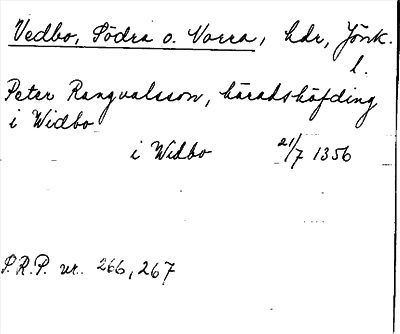 Vedbo, Södra o. Norra, hdr, Jönk.
l.
Peter Rangvalsson, häradshöfding
i Widbo
i Widbo 21/7 1356
S.R.P. nr. 266, 267